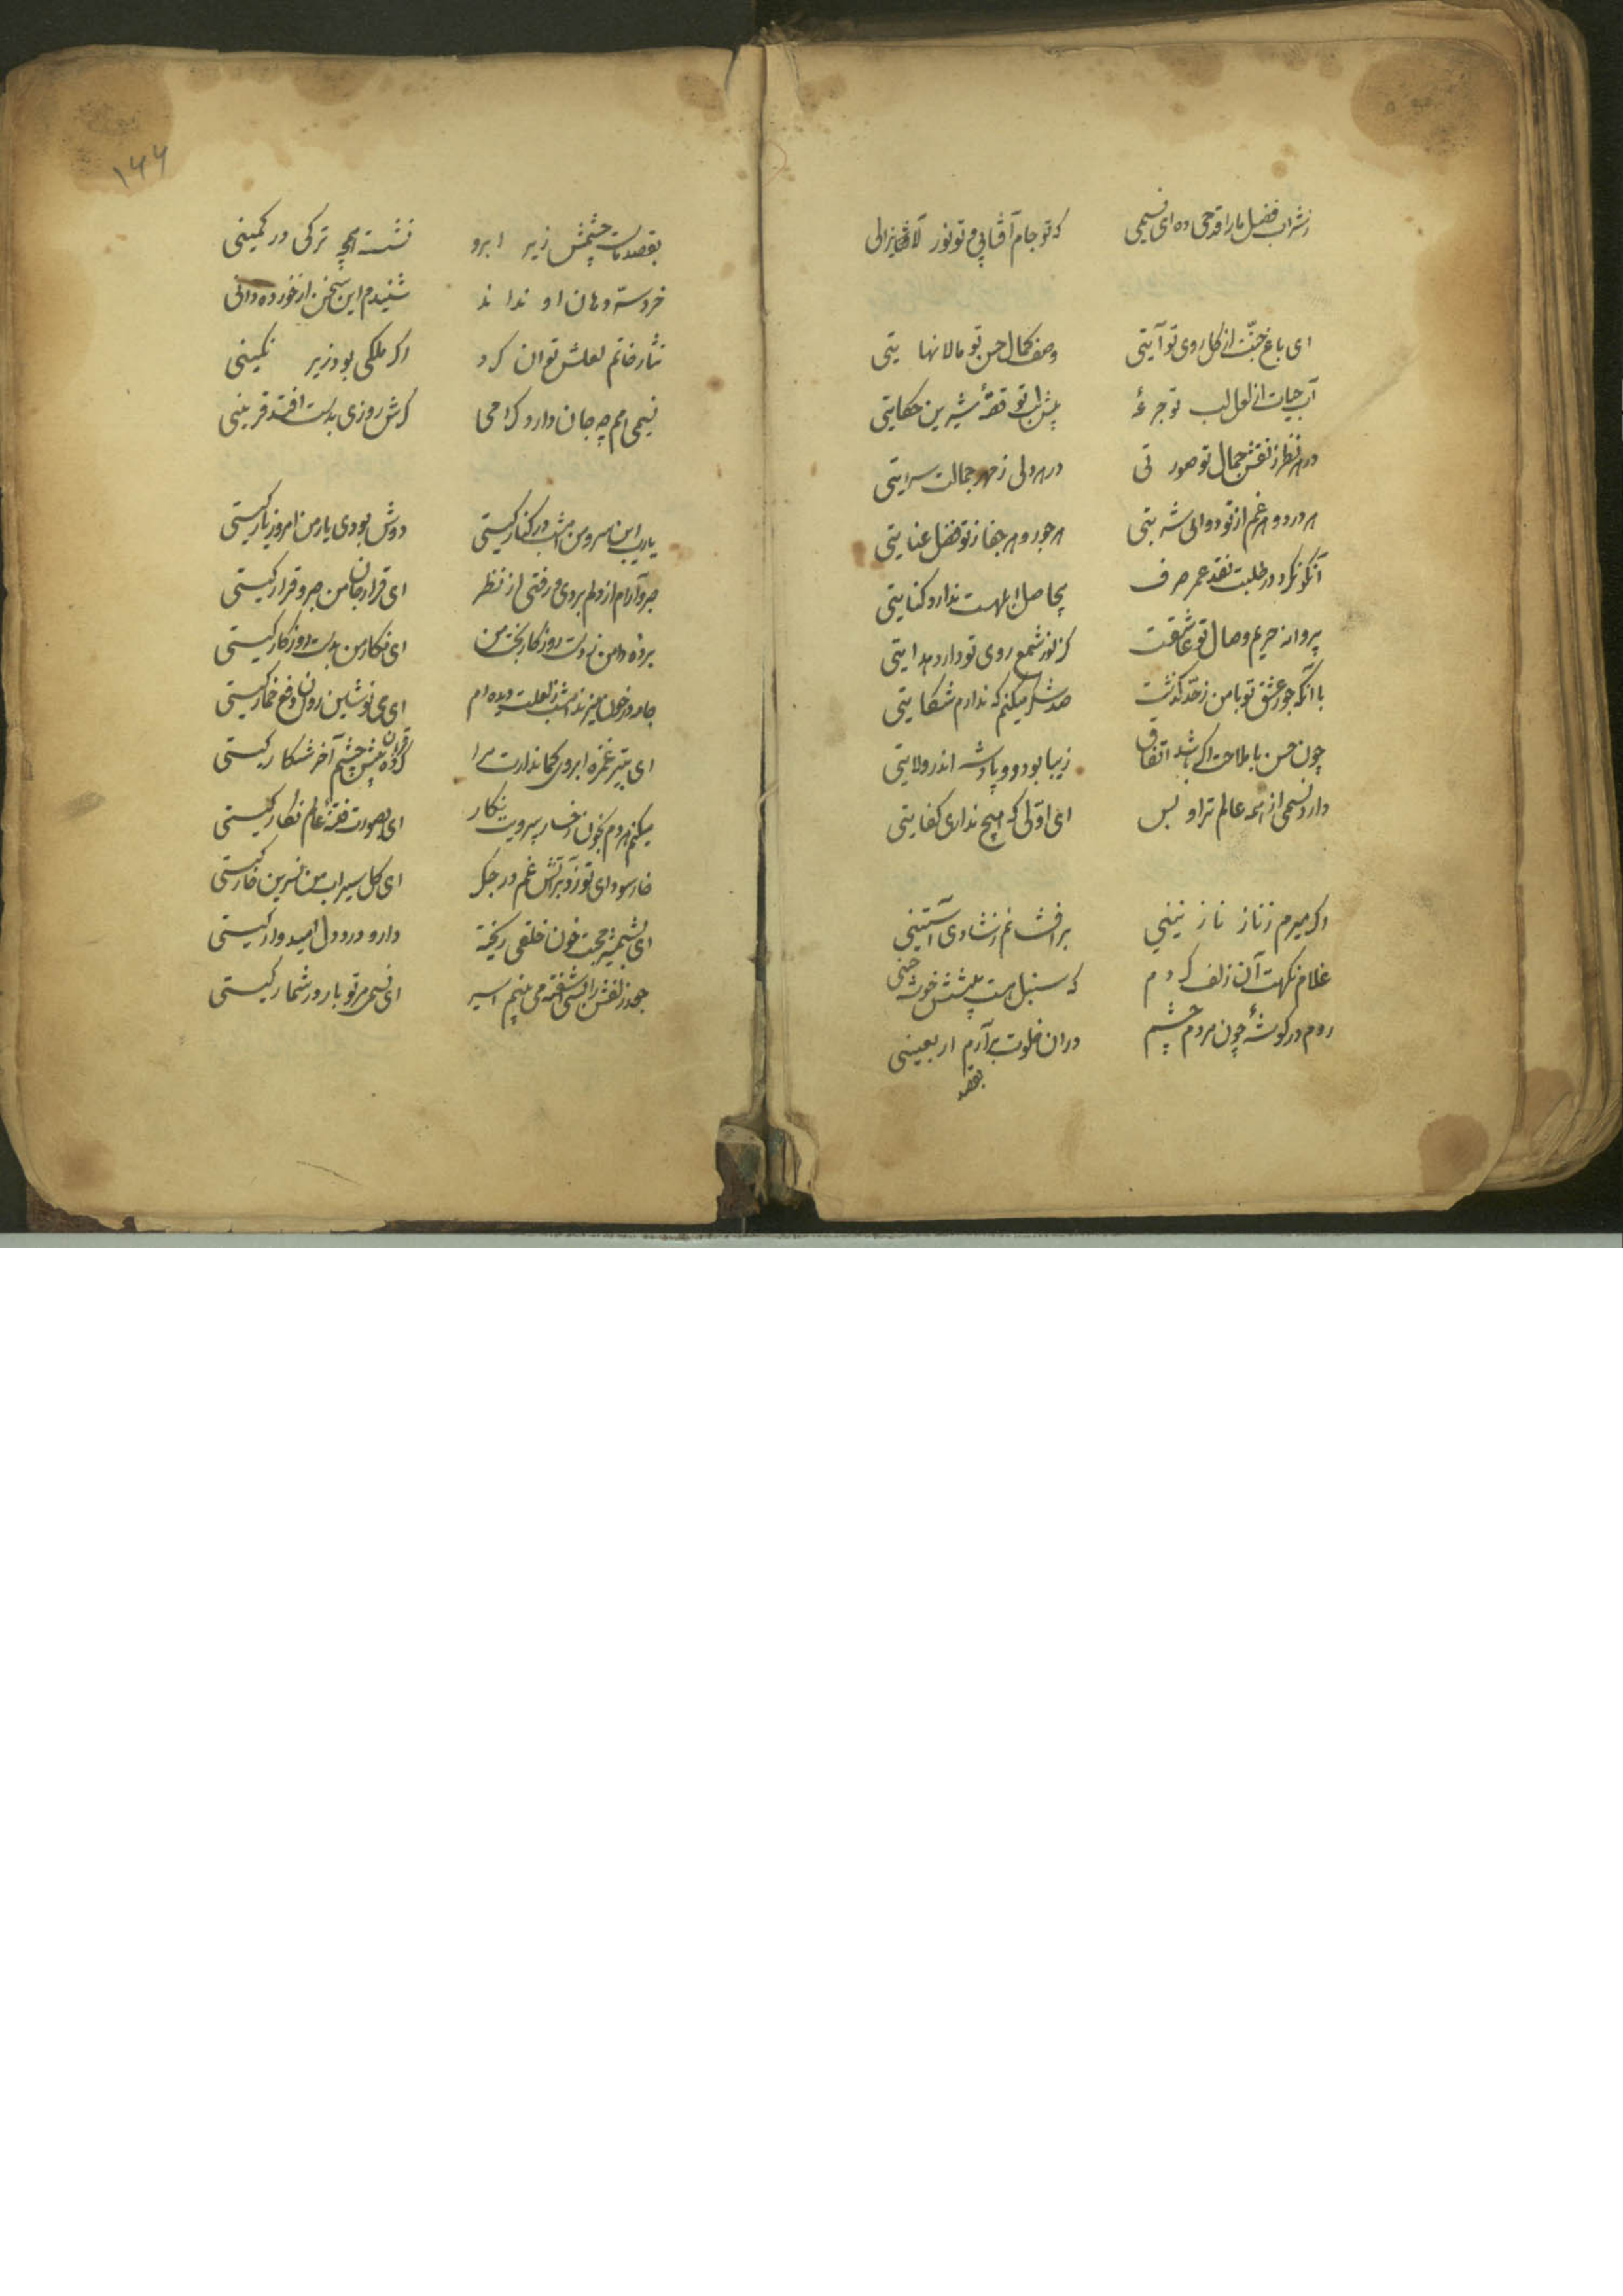 ز شراب فضل ما را قدحی ده ای نسیمی که تو جام آفتابی و تو نور لایزالی
ای باغ جنّت از گل روی تو آیتی وصف کمال حسن تو مالانهایتی
آب حیات از لعل لب تو جرعهٔ پیش لب تو قصّهٔ شیرین حکایتی
در هر نظر ز نقش جمال تو صورتی در هر دلی ز مهر جمالت سرایتی
هر درد و هر غم از تو دوایی شربتی هر جور و هر جفا ز تو فضل عنایتی
آنکو نکرد در طلبت نقد عمر صرف بیحاصل ابلهست ندارد کفایتی
پروانه حریم وصال تو عاشقست کز نور شمع روی تو دارد هدایتی
با آنکه جور عشق تو با من ز حدّ گذشت صد شکر میکنم که ندارم شکایتی
چون حسن با ملاحت اگر باشد اتفاق زیبا بود دو پادشه اندر ولایتی
دارد نسیمی از همه عالم ترا و بس ای که هیچ نداری کفایتی
اگر میرم ز ناز نازنینی برافشانم ز شادی آستینی
غلام نکهت آن زلف کردم که سنبل هست پیشش خوشه چینی
روم در گوشهٔ چون مردم چشم در ان خلوت برآرم اربعینی
بقصد
۱۴۴
بقصد ما چشمش زیر ابرو نشسته همچو ترکی در کمینی
خرد سرّ دهان او نداند شنیدم این سخن از خورده دانی
نثار خاتم لعلش توان کرد اگر ملکی بود زیر نگینی
نسیمی هم چه جان دارد گرامی گرش روزی بدست افتد قرینی
یارب این سرو من امشب در کنار کیستی دوش بودی یار من امروز یار کیستی
صبر و آرام از دلم بردی و رفتی از نظر ای قرار جان من صبر و قرار کیستی
برده دامن ز دست روزگار بخت من ای نگار من بدست روزگار کیستی
جام در خون میزند امشب ز لعلت دیده ام ای می نوشین روان دفع خمار کیستی
ای بتیر غمزه ابروی کماندارت مرا کرده قربان پیش چشم آخر شکار کیستی
میکنم هر دم بخون رخسار بیرویت نگار ای بصورت فتنهٔ عالم نگار کیستی
خار سودای تو زد بر آتش غم در جگر ای گل سیراب من نسرین خار کیستی
ای بشمشیر محبت خون خلقی ریخته دارو درد دل امیدوار کیستی
چو در زلفش را بسی آشفته می بینم اسیر ای نسیمی تو باری در شمار کیستی